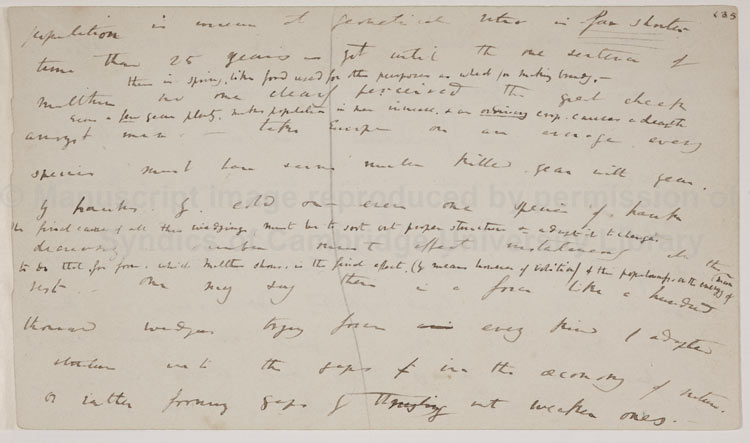 135
population in increase at geometrical ratio in far shorter
time than 25 years — yet until the one sentence of
there is spring, like food used for other purposes as wheat for making brandy.—
Malthus no one clearly perceived the great check
Even a few years plenty, makes population in men increase, & an ordinary crop. causes a dearth
amongst men. — take Europe on an average every
species must have same number killed year with year.
by hawks. by. cold &c — even one species of hawk
the final cause of all this wedgings, must be to sort out proper structure & adapt it to change.
decreasing in number must affect instantaneously all the
to do that for form, which Malthus shows, is the final effect, (by means however of volition) of this populousness, on the energy of man
rest. — One may say there is a force like a hundred
thousand wedges trying force every kind of adapted
structure into the gaps in the œconomy of nature.
or rather forming gaps by thrusting out weaker ones. —
© Manuscript image reproduced by permission of
Syndics of Cambridge University Library